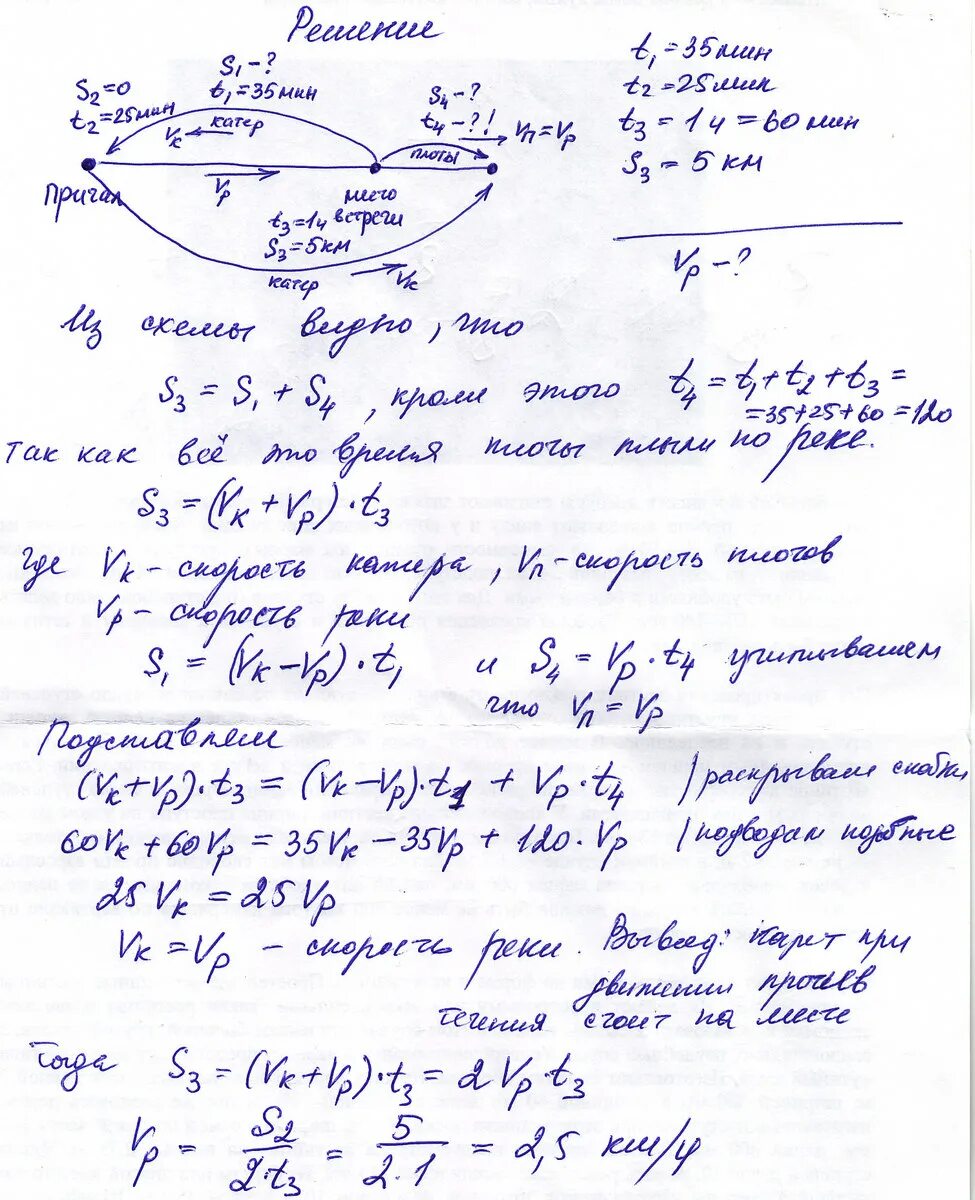 Решение
S₁ – ?
t₁ = 35 мин
S₂ = 0
t₂ = 25 мин
Vк
катер
S₄ – ?
t₄ – ?!
плоты
Vп = Vр
Причал
Vр
место
встречи
t₃ = 1ч
S₃ = 5 км
катер
Vк
t₁ = 35 мин
t₂ = 25 мин
t₃ = 1 ч = 60 мин
S₃ = 5 км
Vр – ?
Из схемы видно, что
S₃ = S₁ + S₄, кроме этого t₄ = t₁ + t₂ + t₃ =
= 35 + 25 + 60 = 120
так как всё это время плоты плыли по реке.
S₃ = (Vк + Vр) · t₃
Где Vк – скорость катера, Vп – скорость плотов
Vр – скорость реки
S₁ = (Vк – Vр) · t₁ и S₄ = Vр · t₄ учитываем
что Vп = Vр
Подставляем
(Vк + Vр) · t₃ = (Vк – Vр) · t₁ + Vр · t₄ / раскрываем скобки
60Vк + 60Vр = 35Vк – 35Vр + 120 · Vр / подводим подобные
25Vк = 25Vр
Vк = Vр – скорость реки. Вывод: катер при
движении против
течения стоит на месте
Тогда S₃ = (Vк + Vр) · t₃ = 2Vр · t₃
Vр = S₂ / 2 · t₃ = 5 / 2 · 1 = 2,5 км/ч